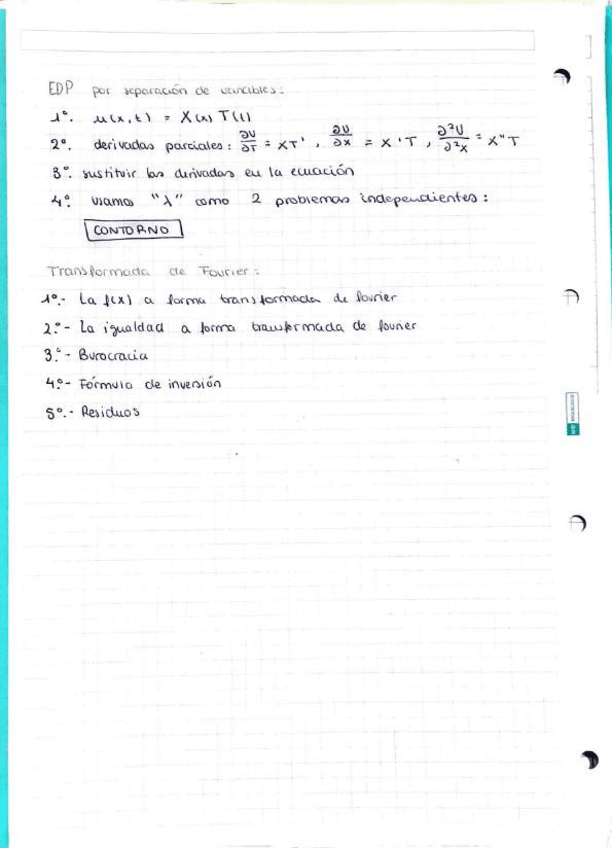 EDP por separación de variables:
1º. u(x,t) = X(x) T(t)
2º. derivadas parciales: ∂U/∂T = XT', ∂U/∂x = X'T, ∂²U/∂²x = X"T
3º. sustituir las derivadas en la ecuación
4º. usamos "λ" como 2 problemas independientes:
CONTORNO
Transformada de Fourier:
1º.- La f(x) a forma transformada de fourier
2º.- La igualdad a forma transformada de fourier
3º.- Burocracia
4º.- Fórmula de inversión
5º.- Residuos